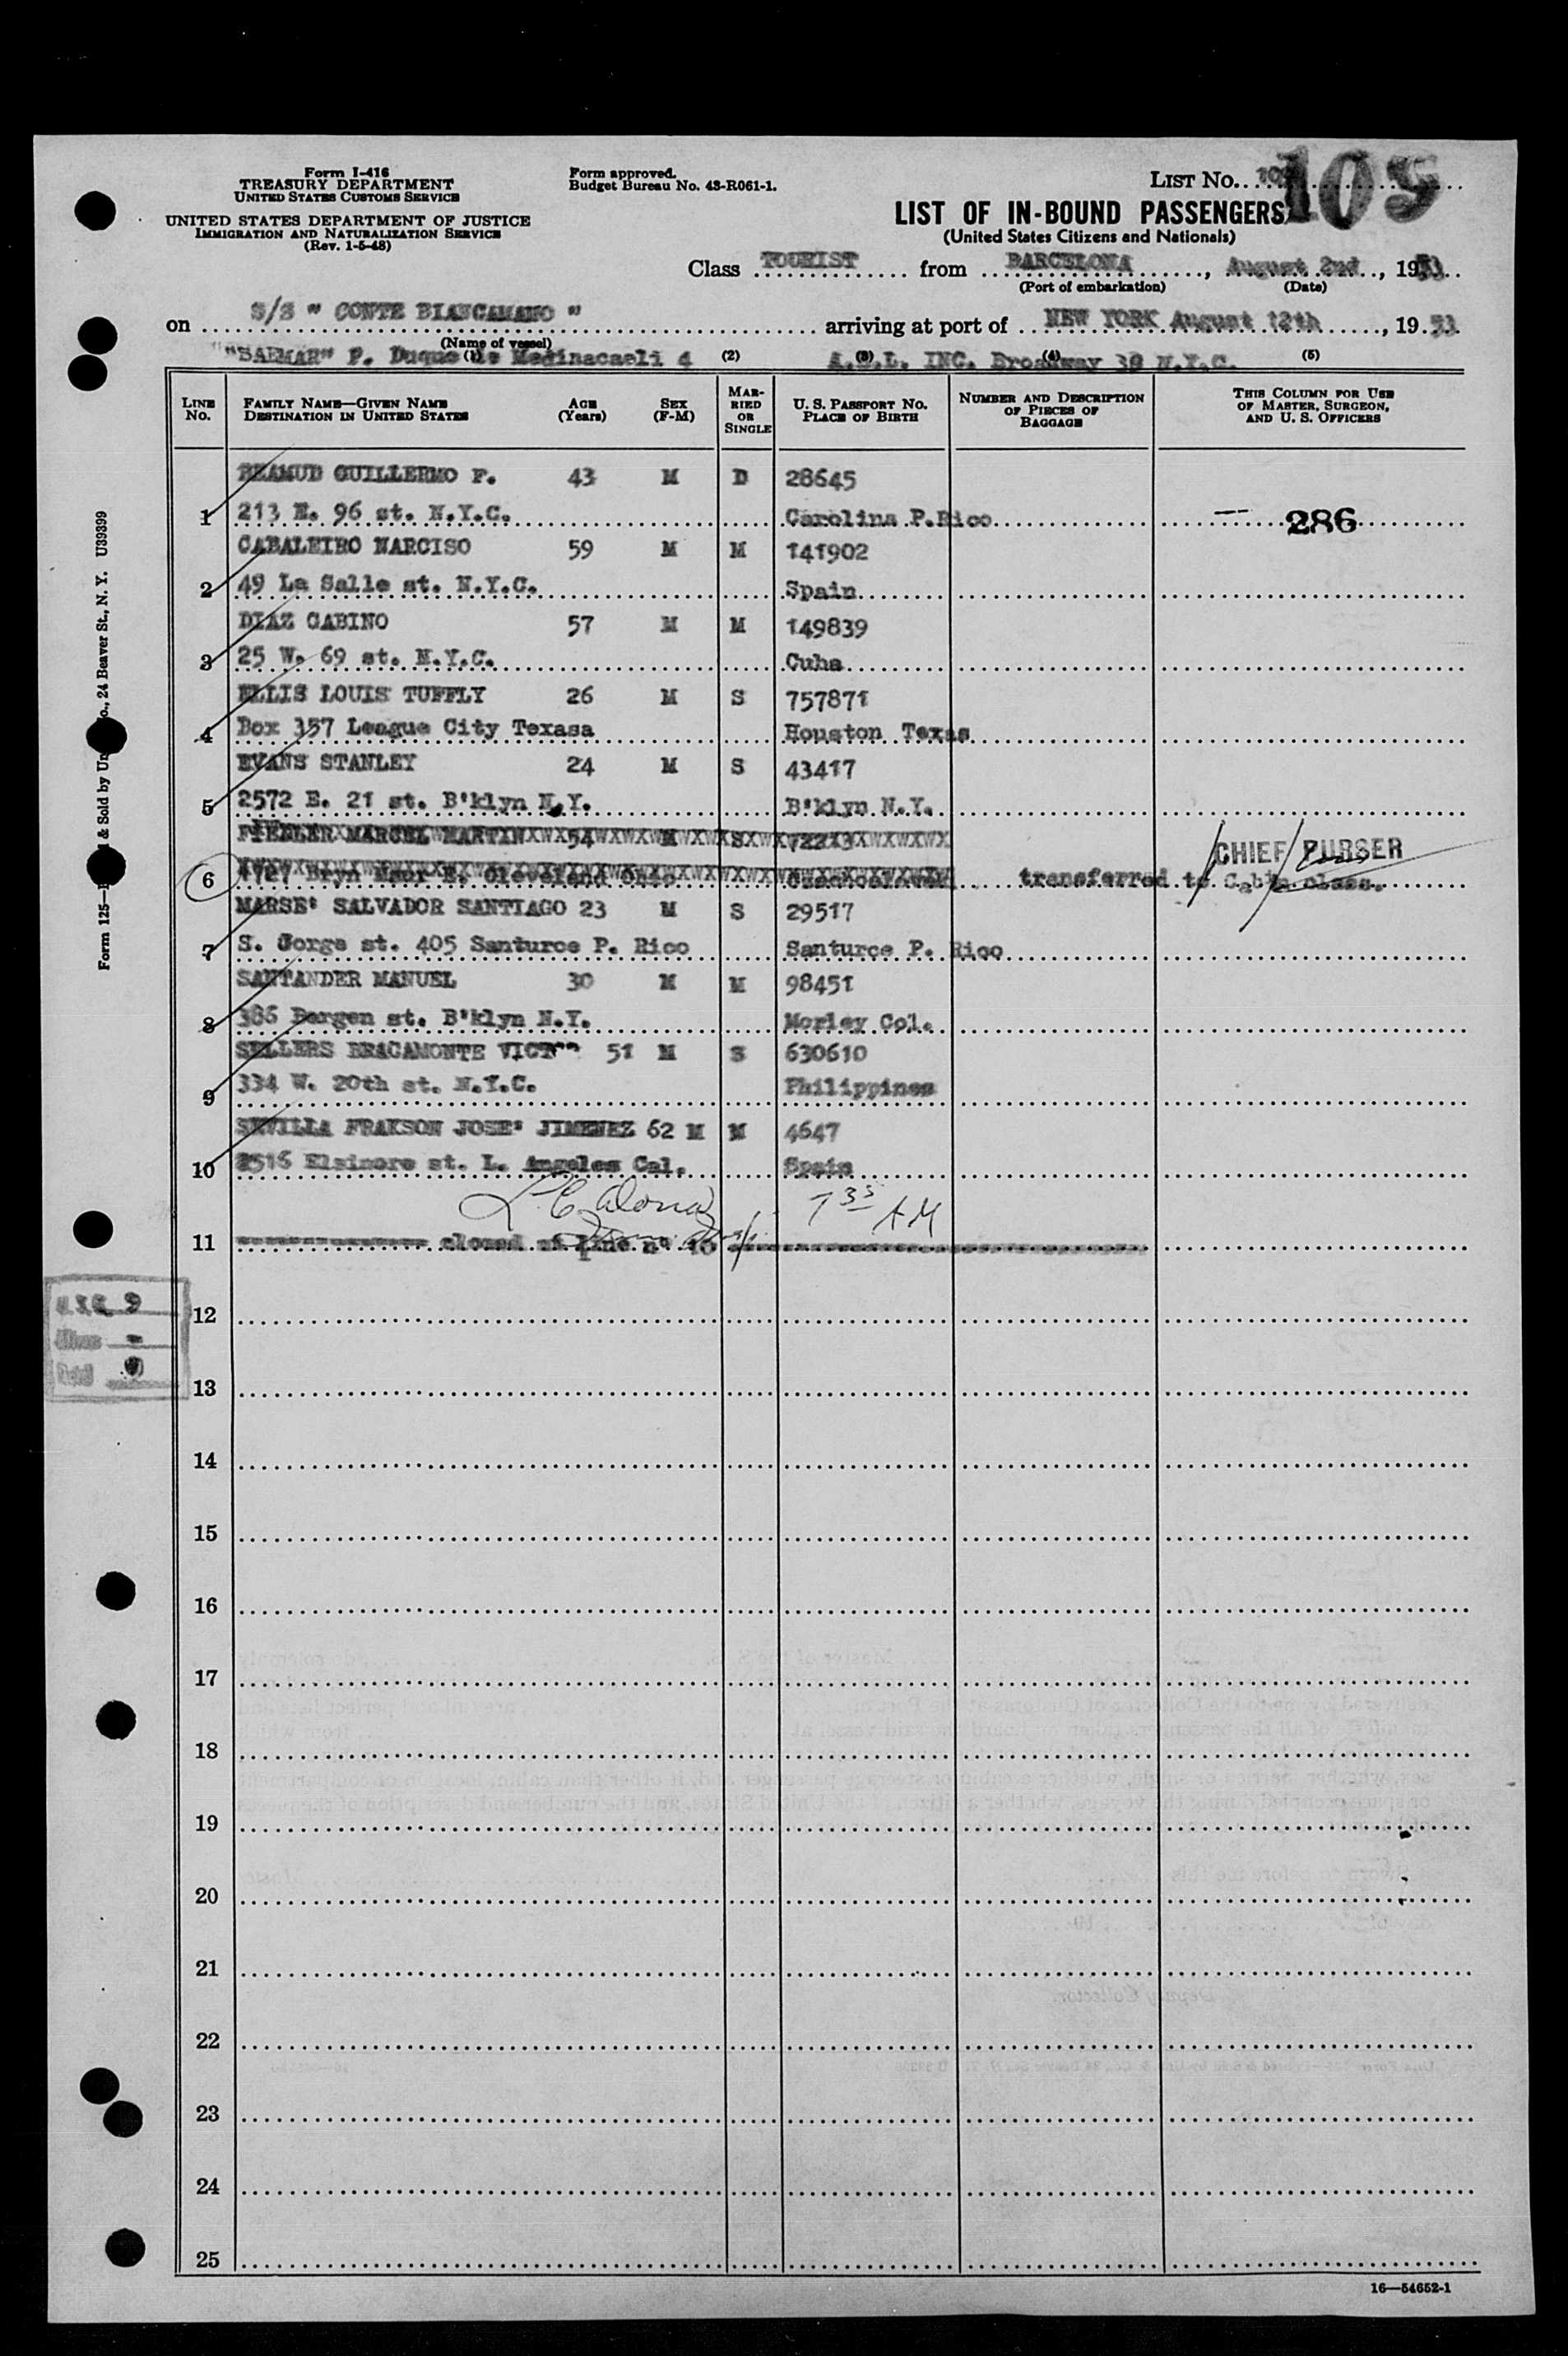 Form I-416
TREASURY DEPARTMENT
UNITED STATES CUSTOMS SERVICE
UNITED STATES DEPARTMENT OF JUSTICE
IMMIGRATION AND NATURALIZATION SERVICE
(Rev. 1-5-48)
Form approved.
Budget Bureau No. 43-R061-1.
LIST No. 109
LIST OF IN-BOUND PASSENGERS
(United States Citizens and Nationals)
Class TOURIST from BARCELONA, August 2nd, 1953
(Port of embarkation) (Date)
on S/S " CONTE BIANCAMANO " arriving at port of NEW YORK August 12th, 1953
(Name of vessel)
P. Duque de Medinacaeli 4 (2) A.S.L. INC. Broadway 39 N.Y.C. (5)
(1) (3) (4)
LINE No. FAMILY NAME—GIVEN NAME DESTINATION IN UNITED STATES AGE (Years) SEX (F-M) MARRIED OR SINGLE U. S. PASSPORT No. PLACE OF BIRTH NUMBER AND DESCRIPTION OF PIECES OF BAGGAGE THIS COLUMN FOR USE OF MASTER, SURGEON, AND U. S. OFFICERS
GUILLERMO F. 43 M D 28645
1 213 E. 96 st. N.Y.C. Carolina P.Rico — 286
CABALEIRO NARCISO 59 M M 141902
2 49 La Salle st. N.Y.C. Spain
DIAZ GABINO 57 M M 149839
3 25 W. 69 st. N.Y.C. Cuba
ELLIS LOUIS TUFFLY 26 M S 757871
4 Box 357 League City Texasa Houston Texas
EVANS STANLEY 24 M S 43417
5 2572 E. 21 st. B'klyn N.Y. B'klyn N.Y.
MARCEL MARTIN 54 M S
CHIEF PURSER
6 Bryn Maur E. Cleveland Ohio transferred to Cabin class.
MARSE' SALVADOR SANTIAGO 23 M S 29517
7 S. Jorge st. 405 Santurce P. Rico Santurce P. Rico
SANTANDER MANUEL 30 M M 98451
8 386 Bergen st. B'klyn N.Y. Morley Col.
SELLERS BRACAMONTE VICTOR 51 M S 630610
9 334 W. 20th st. N.Y.C. Philippines
SEVILLA FRAKSON JOSE' JIMENEZ 62 M M 4647
10 2516 Elsinore st. L. Angeles Cal. Spain
7 35 AM
11 closed at line n° 10
12
13
14
15
16
17
18
19
20
21
22
23
24
25
16—54652-1
Form 125— & Sold by Un Co., 24 Beaver St., N. Y. U39399
U.S.C. 9